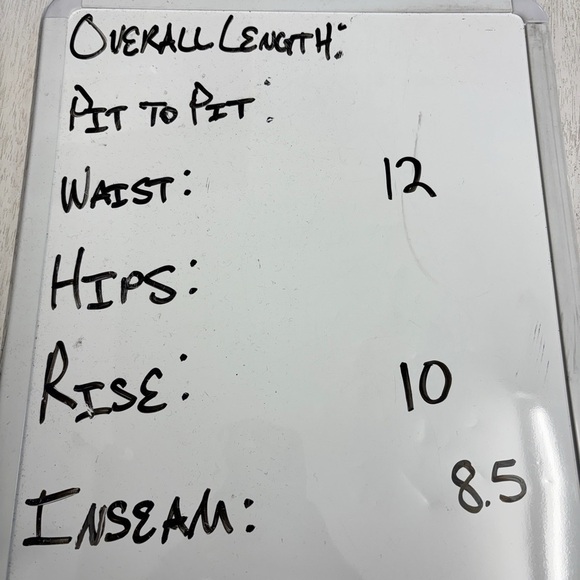 OVERALL LENGTH:
PIT TO PIT:
WAIST: 12
HIPS:
RISE: 10
INSEAM: 8.5